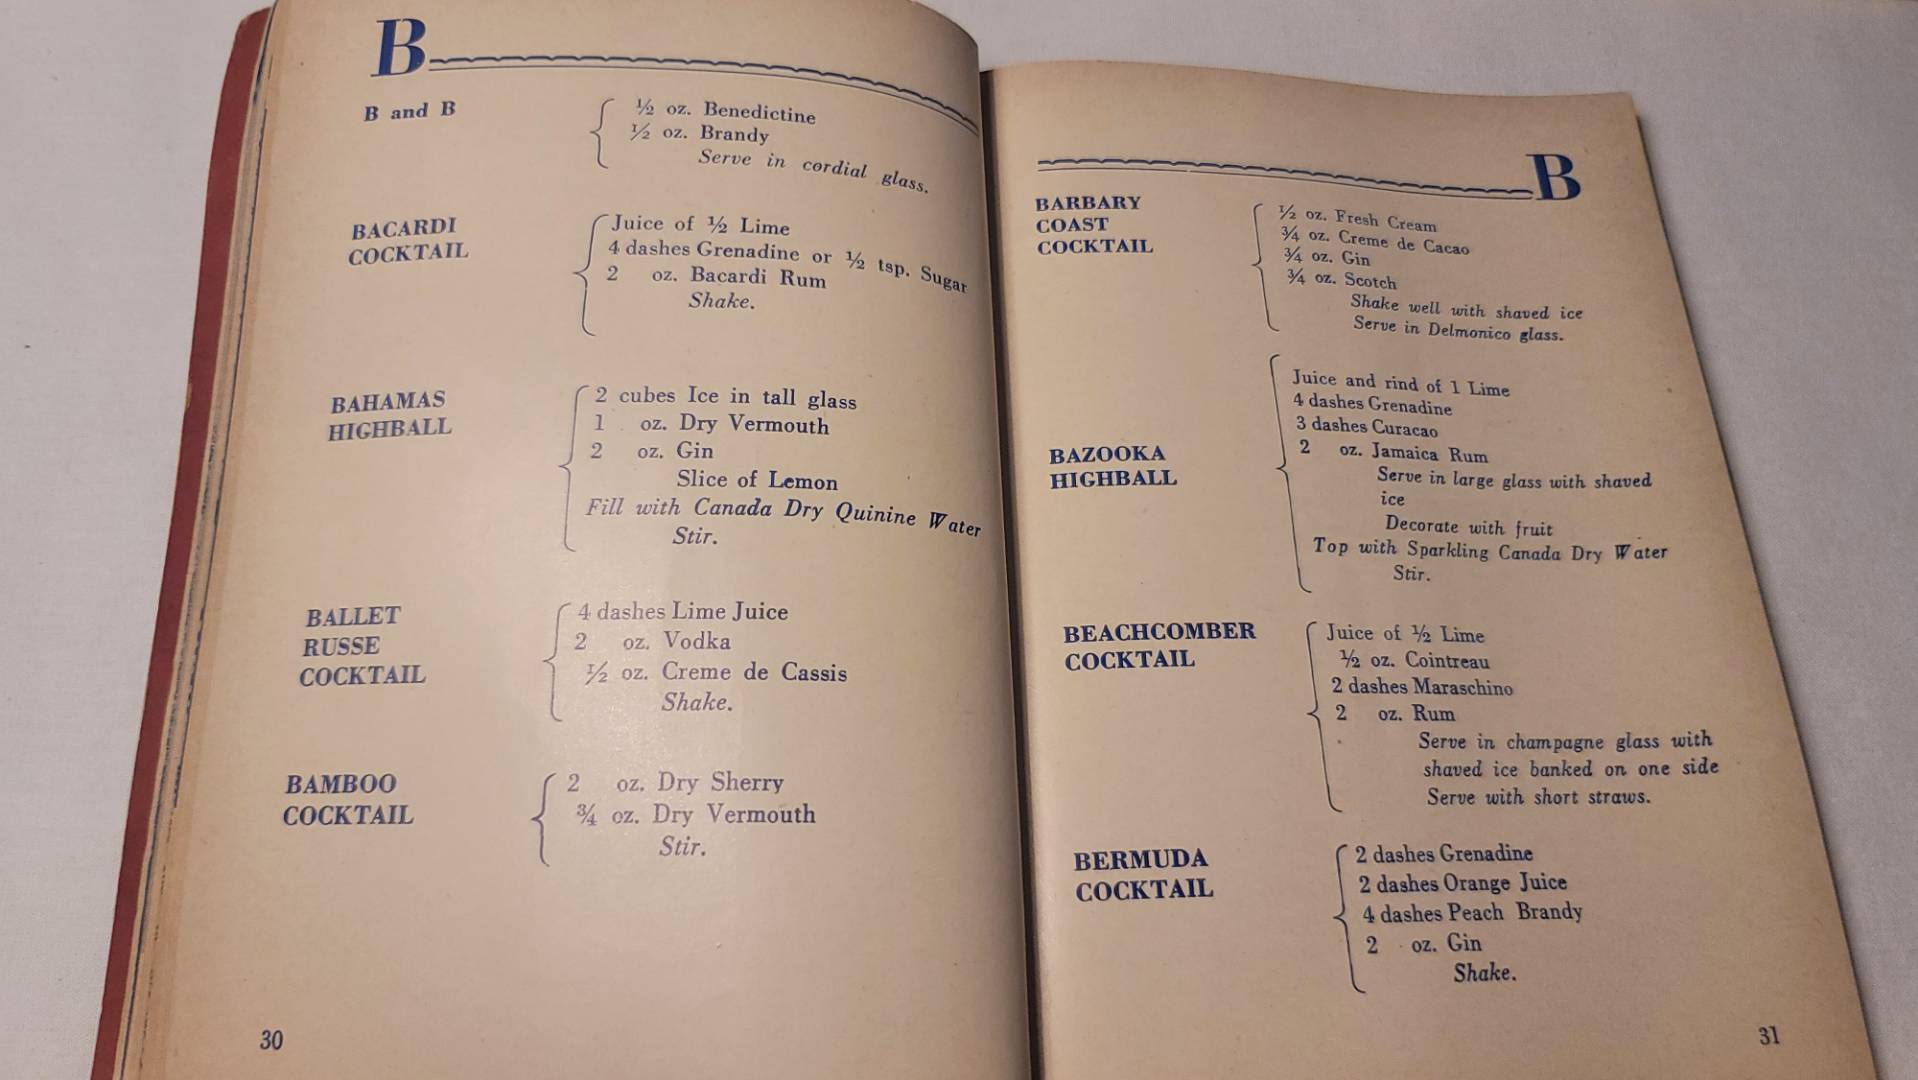 B
B and B
½ oz. Benedictine
½ oz. Brandy
Serve in cordial glass.
BACARDI
COCKTAIL
Juice of ½ Lime
4 dashes Grenadine or ½ tsp. Sugar
2 oz. Bacardi Rum
Shake.
BAHAMAS
HIGHBALL
2 cubes Ice in tall glass
1 oz. Dry Vermouth
2 oz. Gin
Slice of Lemon
Fill with Canada Dry Quinine Water
Stir.
BALLET
RUSSE
COCKTAIL
4 dashes Lime Juice
2 oz. Vodka
½ oz. Creme de Cassis
Shake.
BAMBOO
COCKTAIL
2 oz. Dry Sherry
¾ oz. Dry Vermouth
Stir.
30
B
BARBARY
COAST
COCKTAIL
½ oz. Fresh Cream
¾ oz. Creme de Cacao
¾ oz. Gin
¾ oz. Scotch
Shake well with shaved ice
Serve in Delmonico glass.
BAZOOKA
HIGHBALL
Juice and rind of 1 Lime
4 dashes Grenadine
3 dashes Curacao
2 oz. Jamaica Rum
Serve in large glass with shaved
ice
Decorate with fruit
Top with Sparkling Canada Dry Water
Stir.
BEACHCOMBER
COCKTAIL
Juice of ½ Lime
½ oz. Cointreau
2 dashes Maraschino
2 oz. Rum
Serve in champagne glass with
shaved ice banked on one side
Serve with short straws.
BERMUDA
COCKTAIL
2 dashes Grenadine
2 dashes Orange Juice
4 dashes Peach Brandy
2 oz. Gin
Shake.
31